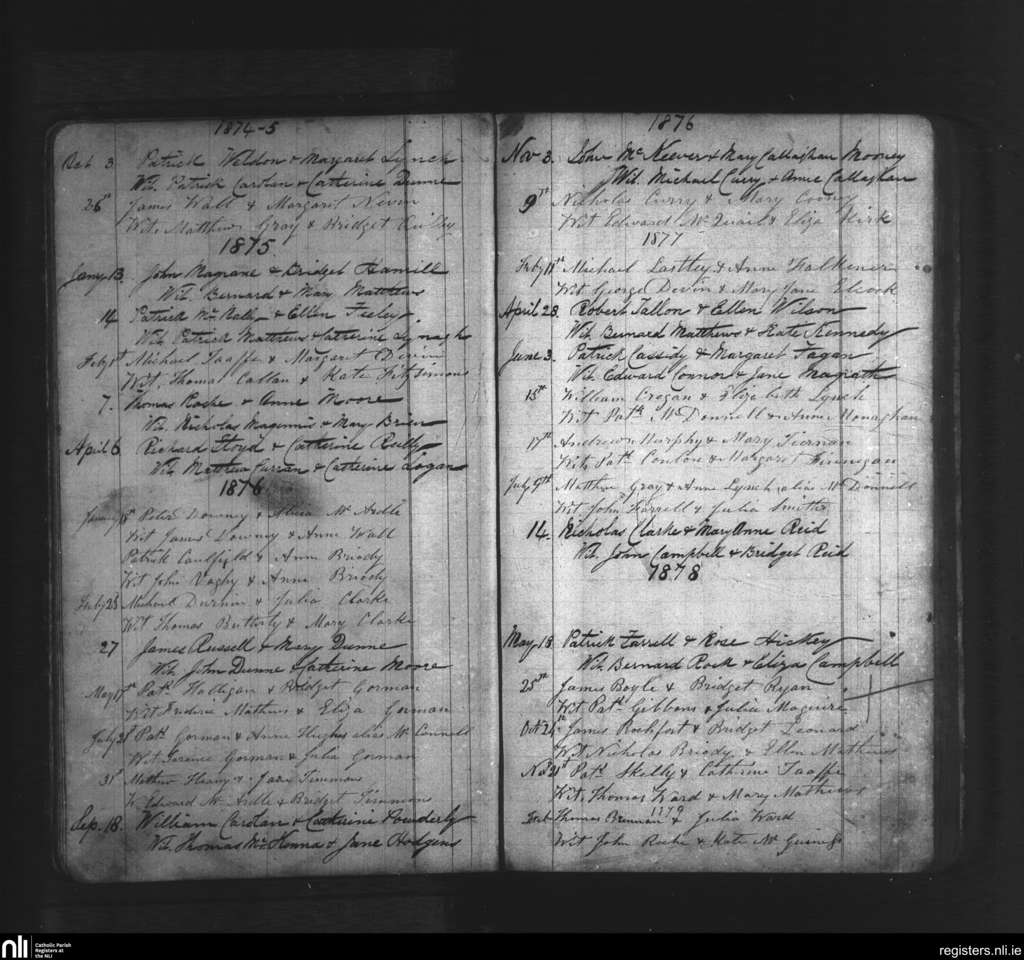 1874-5
Oct 3 Patrick Weldon & Margaret Lynch
Wit. Patrick Carolan & Catherine Dunne
26th James Wall & Margaret Nevin
Wit. Matthew Gray & Bridget Reilly
1875
Jany 13. John Magrane & Bridget Hamill
Wit. Bernard & Mary Matthews
14 Patrick McNally & Ellen Feeley
Wit. Patrick Matthews & Catherine Lynagh
Feby 1st Michael Taaffe & Margaret Devin
Wit. Thomas Callan & Kate Fitzsimons
7. Thomas Roche & Anne Moore
Wit. Nicholas Maginnis & Mary Brien
April 6 Richard Floyd & Catherine Reilly
Wit. Matthew Curran & Catherine Logan
1876
January Peter Downey & Alicia McArdle
Wit James Downey & Anne Wall
Patrick Caulfield & Anne Briody
Wit John & Anne Briody
Feby 28 Michael Durnin & Julia Clarke
Wit Thomas Butterly & Mary Clarke
27 James Russell & Mary Dunne
Wit. John Dunne & Catherine Moore
May 17th Patk Halligan & Bridget Gorman
Wit Frederic Mathews & Eliza Gorman
July 28 Patk Gorman & Anne Hughes alias McConnell
Wit. Terence Gorman & Julia Gorman
31st Mathew Heany & Jane Timmons
W. Edward McArdle & Bridget Timmons
Sep. 18. William Carolan & Catherine Pounderly
Wit. Thomas McKenna & Jane Hodgens
1876
Nov 3. John McKeever & Mary Callaghan Mooney
Wit. Michael Curry & Anne Callaghan
9th Nicholas Curry & Mary Cooney
Wit Edward McQuail & Eliza Kirk
1877
Feby 11th Michael Lastley & Anne Falkener
Wit George Devin & Mary Jane
April 28. Robert Tallon & Ellen Wilson
Wit. Bernard Matthews & Kate Kennedy
June 3. Patrick Cassidy & Margaret Fagan
Wit. Edward Connor & Jane Magrath
15th William Crogan & Elizabeth Lynch
Wit Patk McDonnell & Anne Monaghan
17th Andrew Murphy & Mary Tiernan
Wit. Patk Conlon & Margaret Finnegan
July 9th Matthew Gray & Anne Lynch alias McDonnell
Wit John Farrell & Julia Smith
14. Nicholas Clarke & Mary Anne Reid
Wit. John Campbell & Bridget Reid
1878
May 13 Patrick Farrell & Rose Hickey
Wit. Bernard Rock & Eliza Campbell
25th James Boyle & Bridget Ryan
Wit Patk Gibbons & Julia Maguire
Oct 24th James Rochfort & Bridget Leonard
Wit. Nicholas Briody & Ellen Mathews
Nov 21st Patk Skelly & Cathrine Taaffe
Wit. Thomas Ward & Mary Mathews
1879
Feb Thomas Brennan & Julia Ward
Wit John Roche & Kate McGuiness
nli
Catholic Parish
Registers at
the NLI
registers.nli.ie